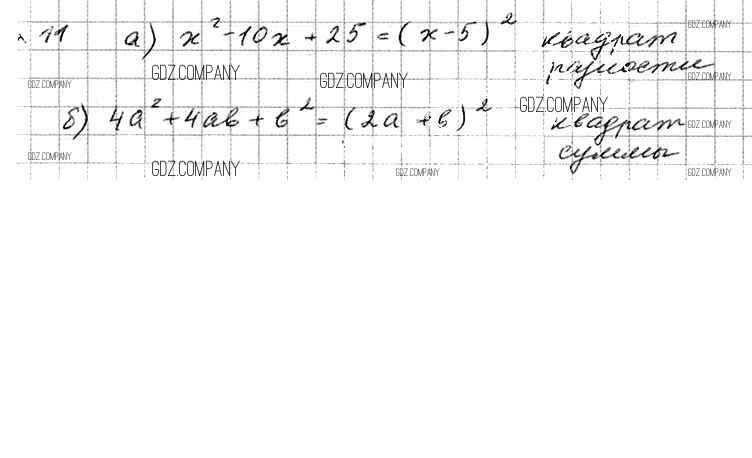 11 а) x² - 10x + 25 = (x - 5)² квадрат
разности
GDZ.COMPANY
GDZ.COMPANY
GDZ.COMPANY
GDZ.COMPANY
GDZ.COMPANY
GDZ.COMPANY
б) 4а² + 4ав + в² = (2а + в)² квадрат
GDZ.COMPANY
суммы
GDZ.COMPANY
GDZ.COMPANY
GDZ.COMPANY
GDZ.COMPANY